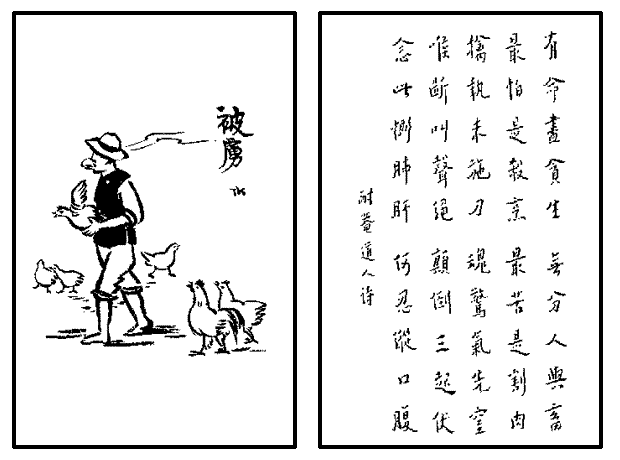 被虜
TK
有命盡貪生 無分人與畜
最怕是殺烹 最苦是割肉
擒執未施刀 魂驚氣先窒
喉斷叫聲絕 顛倒三起伏
念此惻肺肝 何忍縱口腹
耐菴道人詩